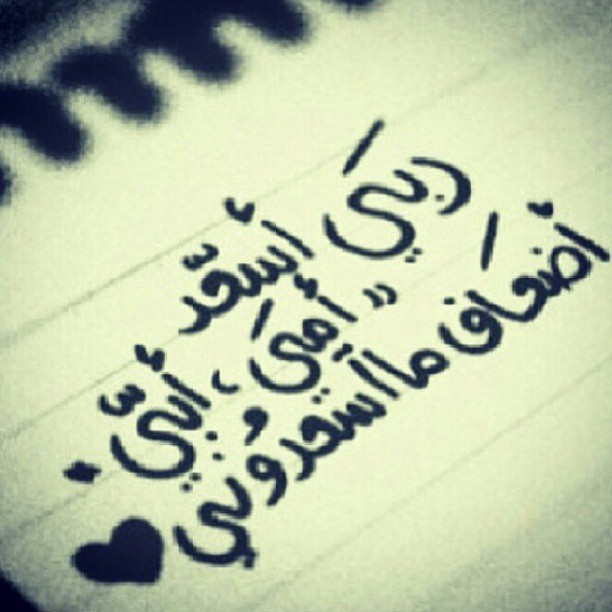 ربيَ أسعّد
" أميَ ، أبيّ .
أضعاف ما اسعدُوني ♥